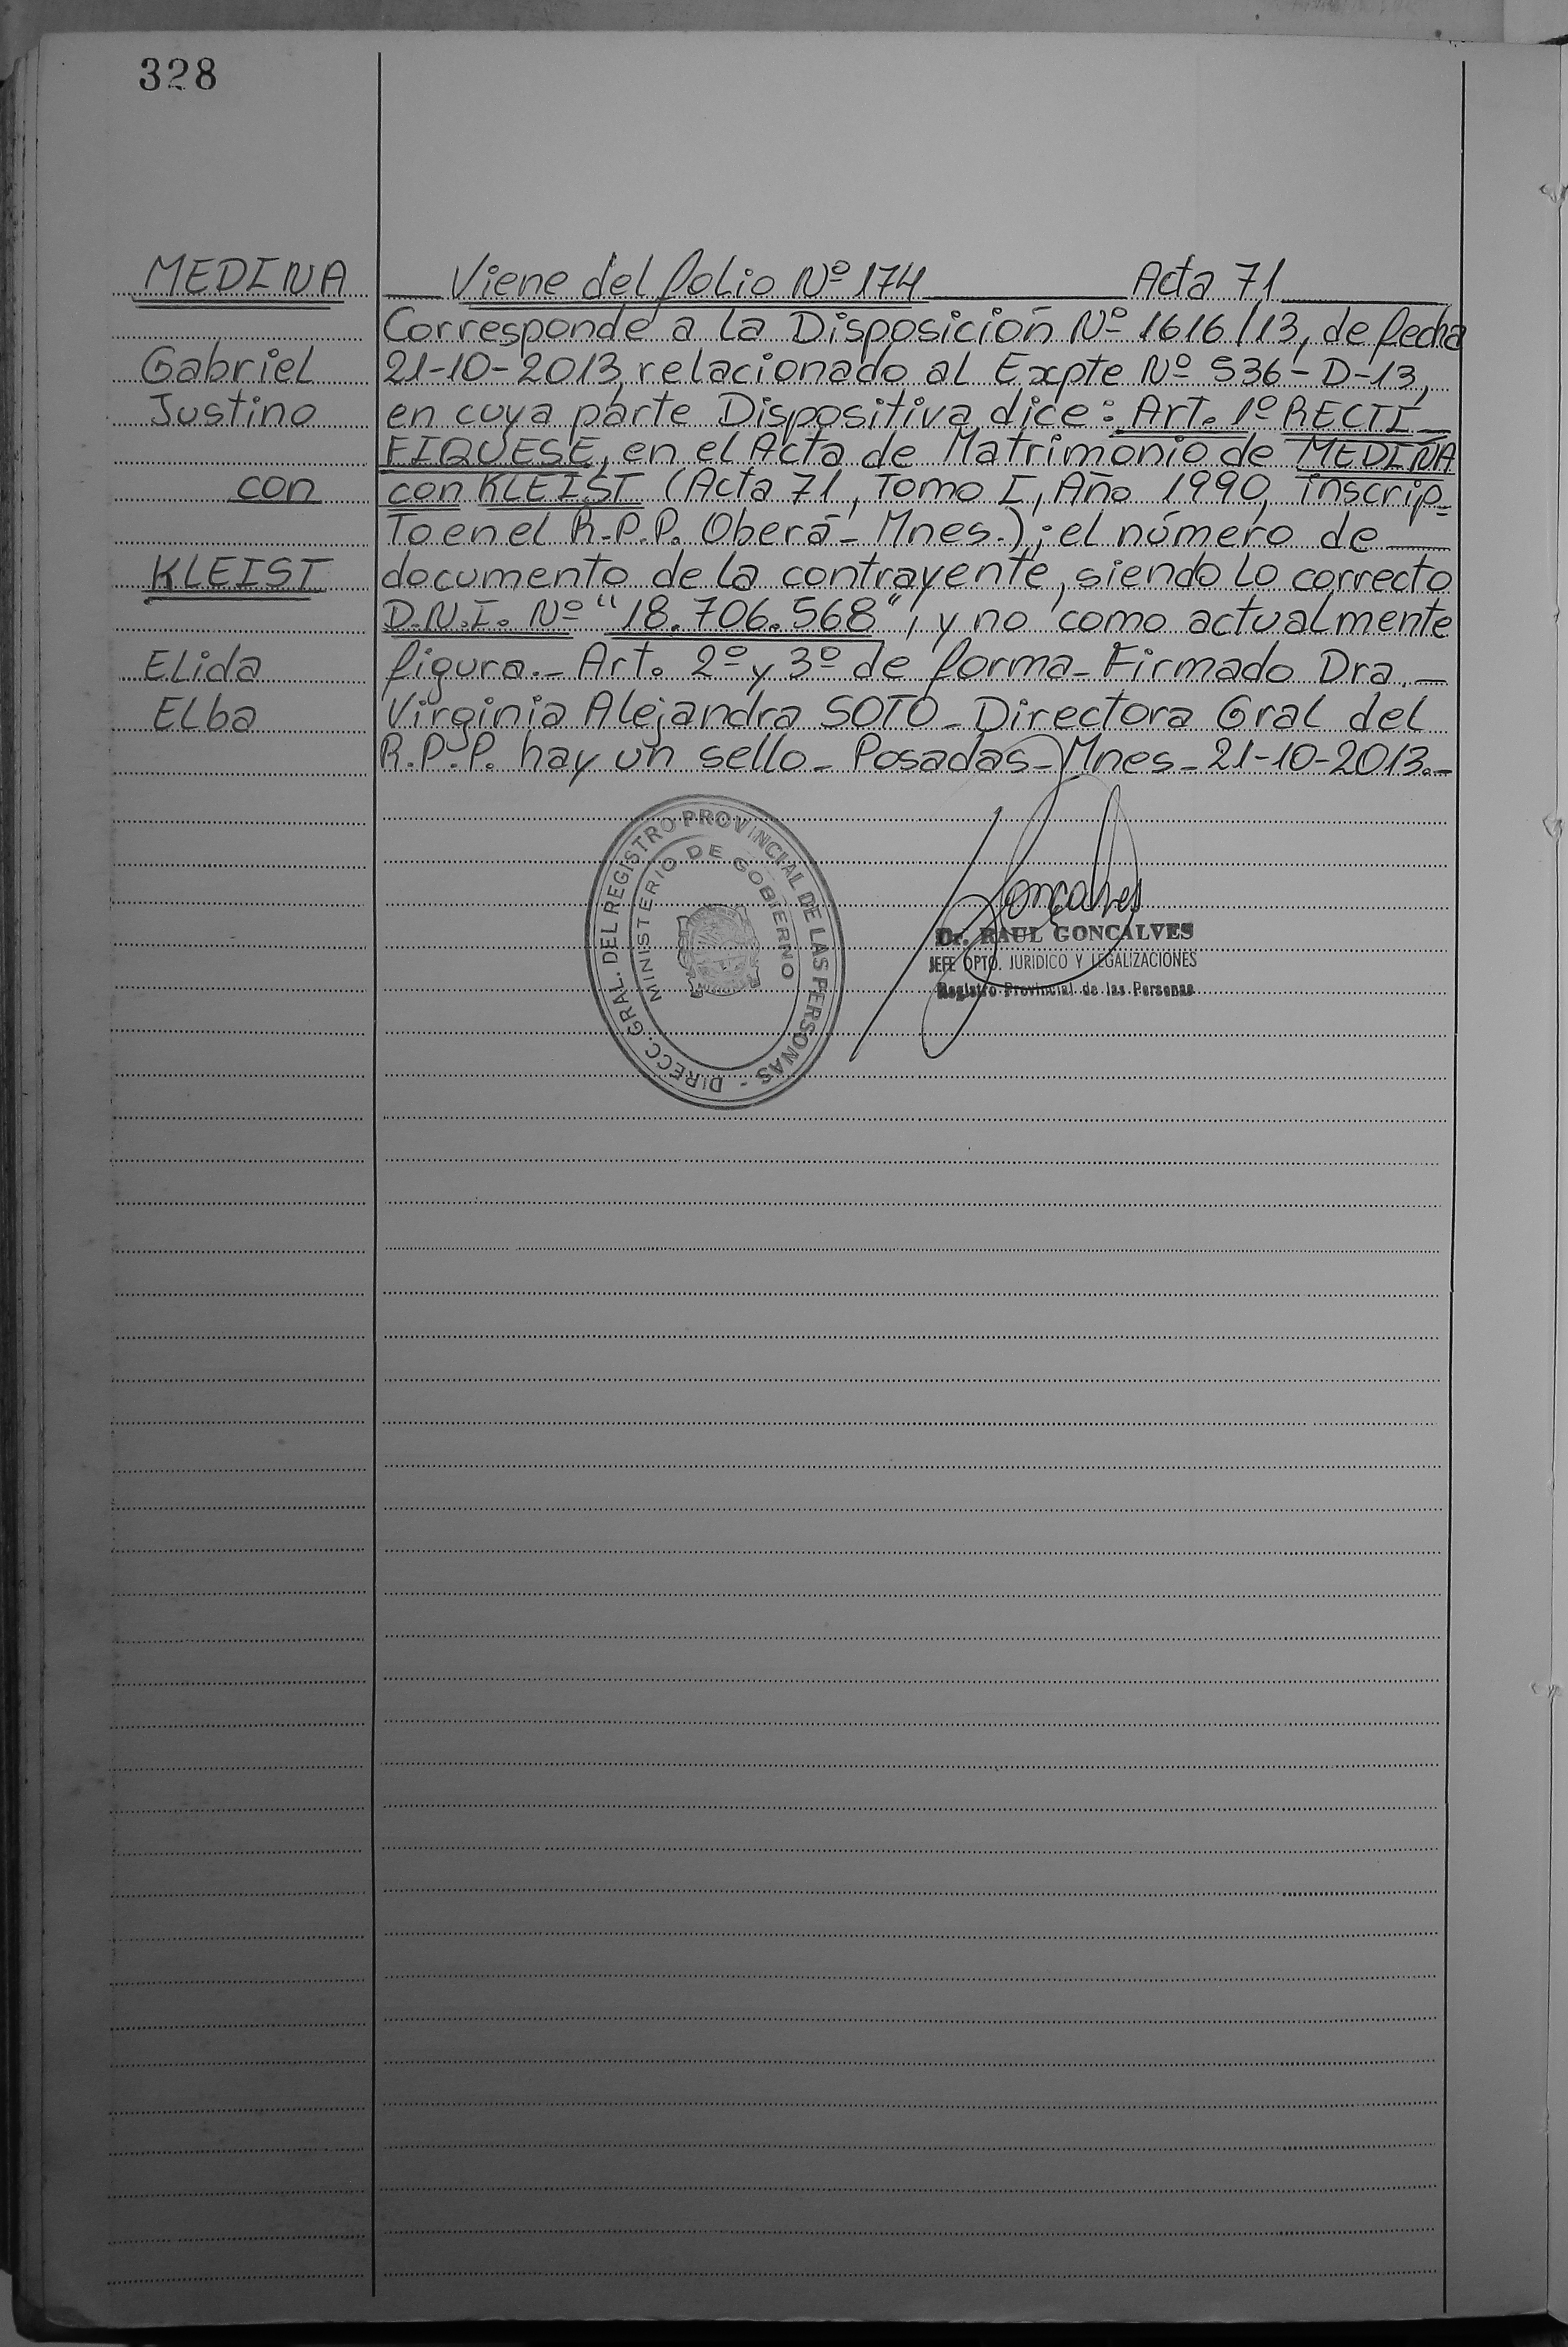 328
MEDINA
Gabriel
Justino
con
KLEIST
Elida
Elba
Viene del folio Nº 174 Acta 71
Corresponde a la Disposición Nº 1616/13, de fecha
21-10-2013, relacionado al Expte Nº 536-D-13,
en cuya parte Dispositiva dice: Art. 1º RECTI_
FIQUESE, en el Acta de Matrimonio de MEDINA
con KLEIST (Acta 71, Tomo I, Año 1990, inscrip=
to en el R.P.P. Oberá - Mnes.); el número de
documento de la contrayente, siendo lo correcto
D.N.I. Nº "18.706.568", y no como actualmente
figura.- Art. 2º y 3º de forma - Firmado Dra. -
Virginia Alejandra SOTO - Directora Gral del
R.P.P. hay un sello - Posadas - Mnes - 21-10-2013.-
DIRECC. GRAL. DEL REGISTRO PROVINCIAL DE LAS PERSONAS -
MINISTERIO DE GOBIERNO
Goncalves
Dr. RAUL GONCALVES
JEFE DPTO. JURIDICO Y LEGALIZACIONES
Registro Provincial de las Personas